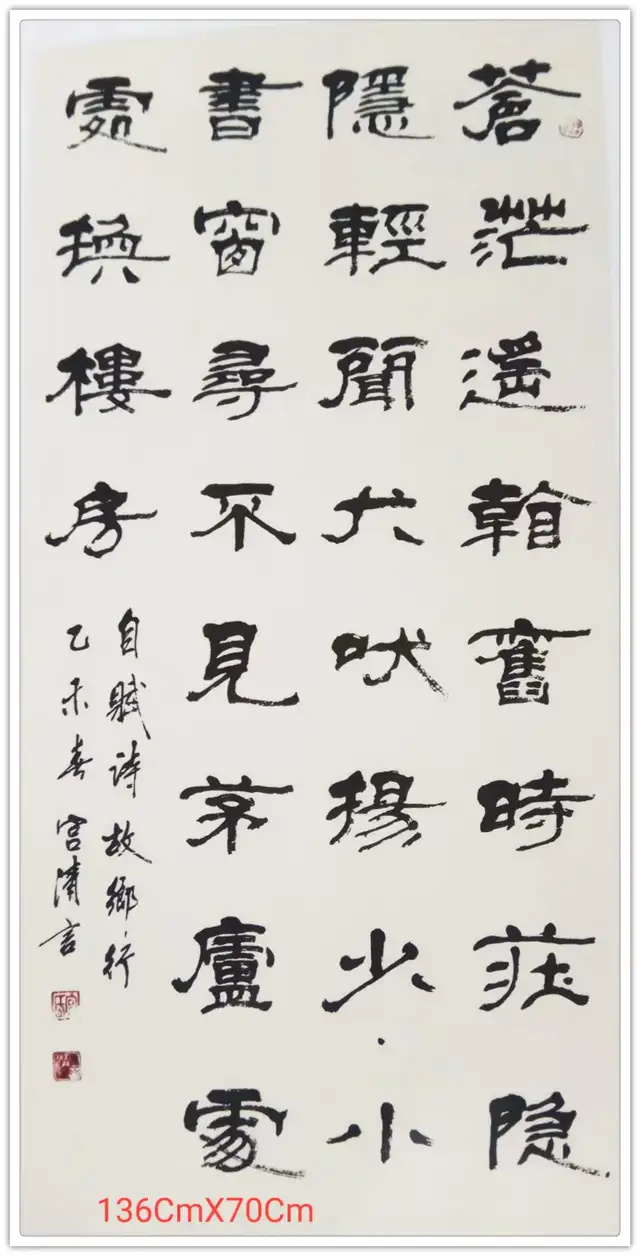 蒼茫遥舊時莊隐
隱輕聞犬吠揚少小
書窗尋不見茅廬處
處換樓房
自賦诗故鄉行
乙未春宫清言
136CmX70Cm